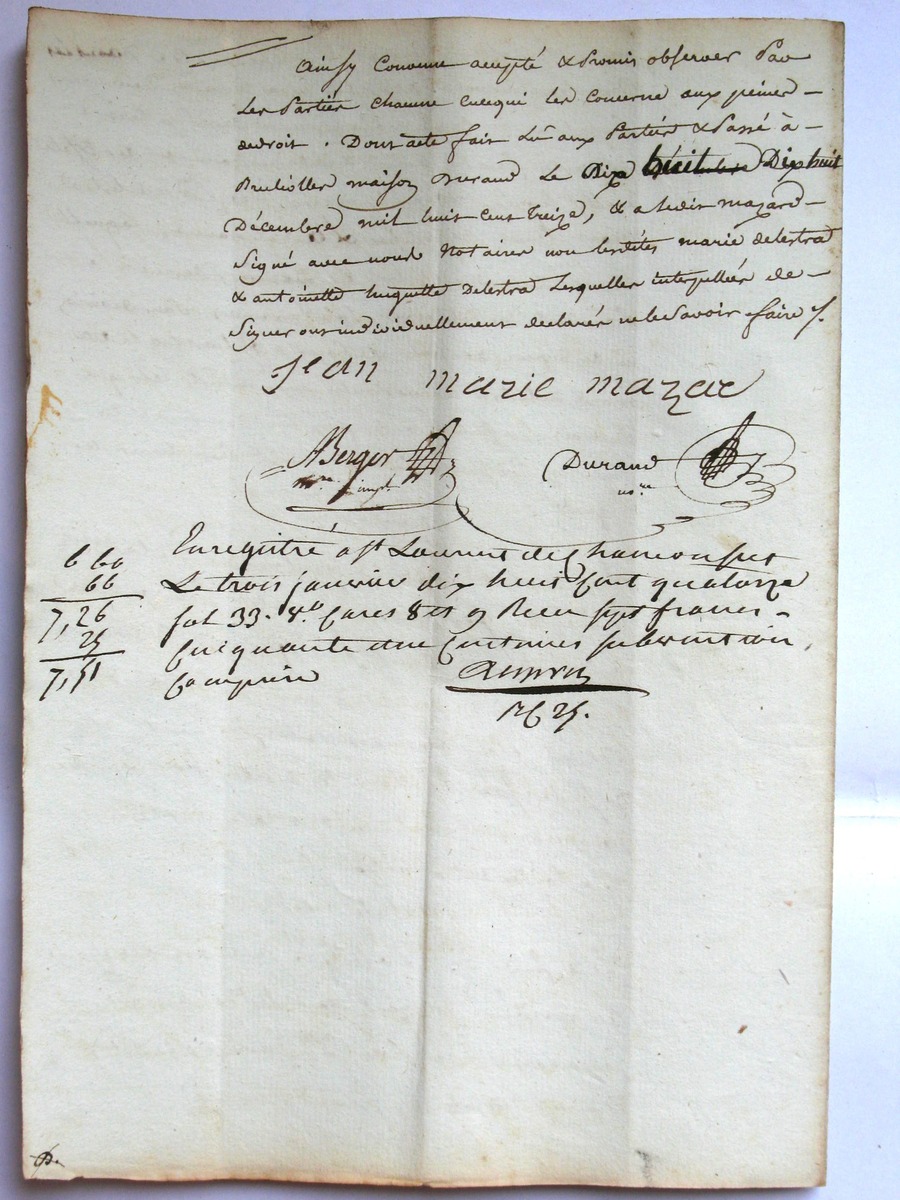 Ainsy convenu accepté & Promis observer Par
Les Parties chacune en ce qui les concerne aux peines
de droit . Dont acte fait Lû aux Parties & Passé à
maison Durand Le Dix huit Dix huit
Décembre mil huit cent Treize, & a ledit mazard
Signé avec nous Notaires non lesdites marie delestra
& antoinette huguette Delestra Lesquelles interpellées de
Signer ont individuellement declarés ne le Savoir faire
Jean marie mazar
ABerger
Durand
no.re
Enregistré a St Laurent de Chamousset
Le trois janvier dix huit Cent quatorze
fol 33. Cares 8 et 9 Recu sept francs
Cinquante une Centimes subvention
Comprise
6 60
66
7,26
25
7,51